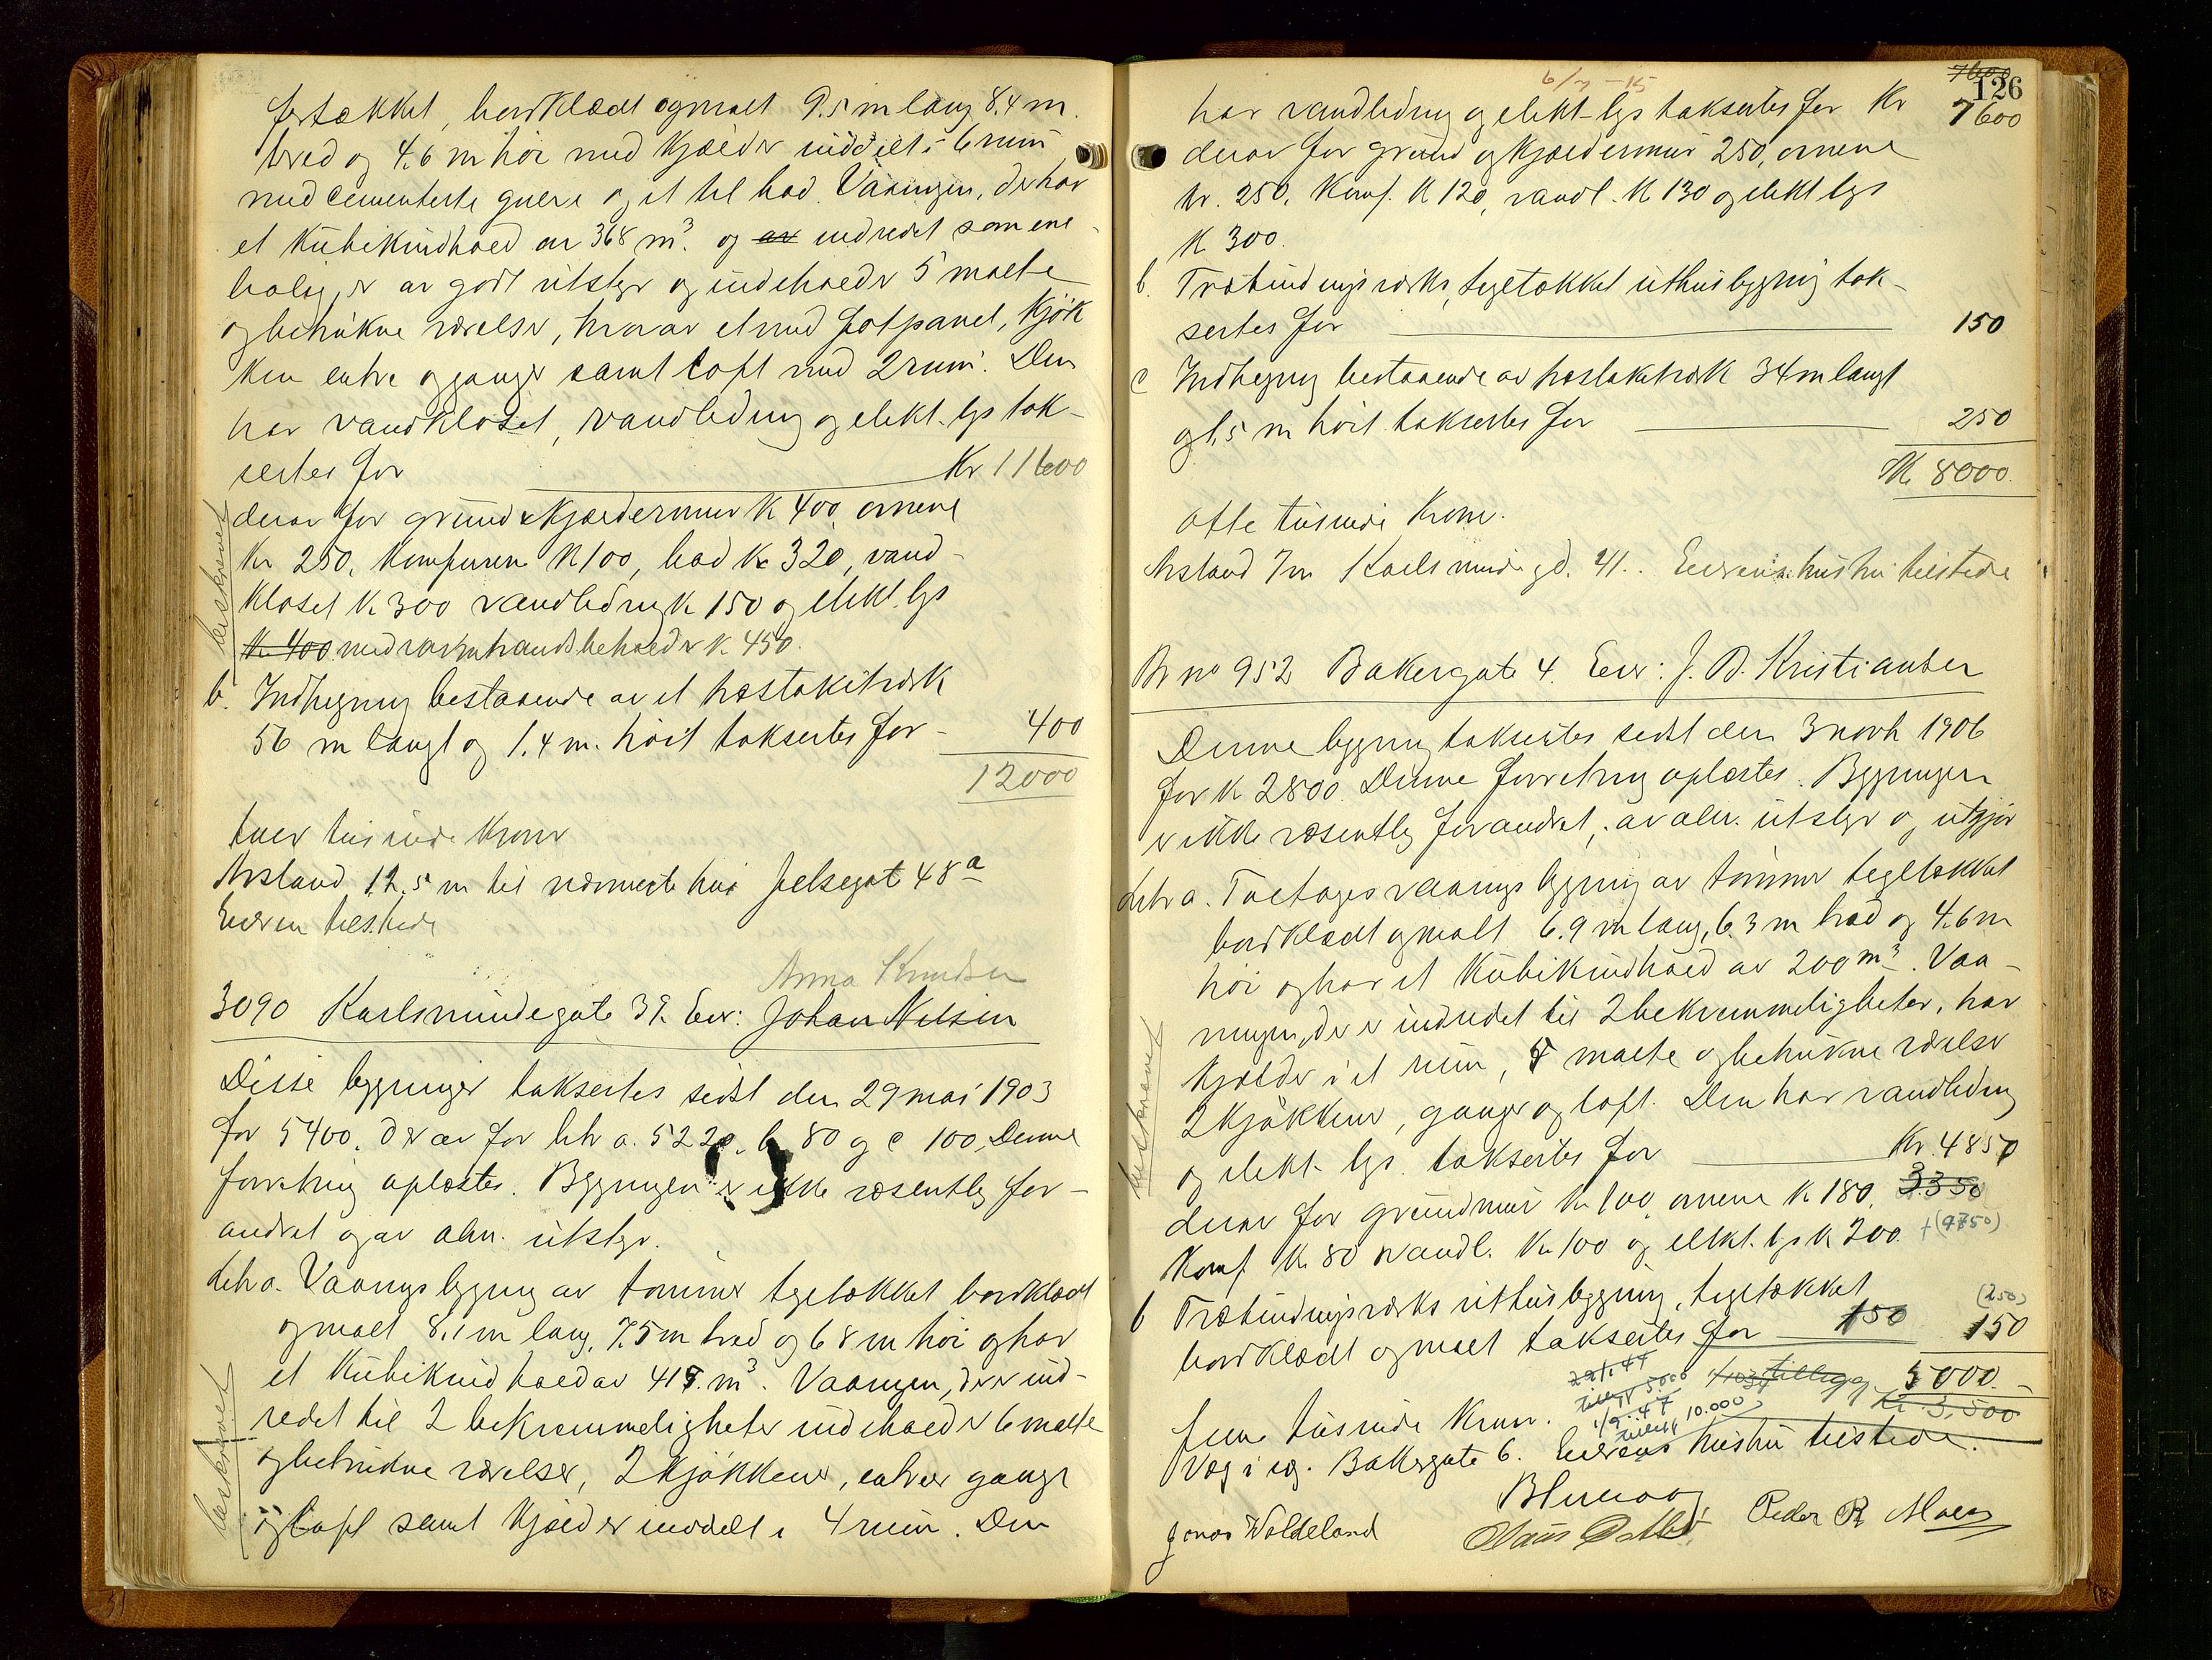 fertækket, bordklædt og malt 9.5 m lang 8.4 m.
bred og 4.6 m høi med kjælder inddelt i 6 rum,
med cementerte gulve og et til bad. Vaaningen, der har
et kubikindhold av 368 m³. og av indredet som ene-
bolig, er av godt utstyr og indeholder 5 malte
og betrukne værelser, hvorav et med fotpanel, kjøk
ken entre og ganger samt loft med 2 rum. Den
har vandkloset, vandledning og elekt. lys tak-
sertes for Kr 11600
derav for grund & kjældermur K 400, ovnene
Kr 250, komfuren K 100, bad Kr 320, vand-
kloset K 300 vandledning K 150 og elekt. lys
K 400 med varmtvandsbeholder K 450.
beskrevet
b. Indhegning bestaaende av et hestakitværk
56 m langt og 1.4 m. høit taksertes for - 400
12000
tolv tusinde kroner
Avstand 12.5 m til nærmeste hus Jelsegat 48a
Eieren tilstede
Anna Knudsen
3090 Karlsmindegate 39. Eier: Johan Nilsen
Disse bygninger taksertes sidst den 29 mai 1903
for 5400, derav for litr a. 5220, b 80 og c 100. Denne
forretning oplæstes. Bygningen er ikke væsentlig for-
andret og av alm. utstyr.
Litr a. Vaaningsbygning av tømmer teglækket bordklædt
og malt 8.1 m lang, 7.5 m bred og 6.8 m høi og har
et kubikindhold av 415 m³. Vaaningen, der er ind-
redet til 2 bekvemmeligheter indeholder 6 malte
og betrukne værelser, 2 kjøkkener, entreer ganger
og loft samt kjælder inddelt i 4 rum. Den
beskrevet
126
6/7 - 15
7600
har vandledning og elekt. lys taksertes for Kr 7600
derav for grund og kjældermur 250, ovnene
Kr. 250, Komf. K 120, vandl. K 130 og elekt lys
K 300.
b. Træbindingsværks, tegltækket uthusbygning tak-
sertes for 150
c Indhegning bestaaende av hestakitværk 34 m langt
og 1,5 m høit taksertes for 250
K 8000.
otte tusinde Kroner.
Avstand 7 m Karlsmindegd. 41. Eierens hustru tilstede
Br no 952 Bakergate 4. Eier: J. B. Kristiansen
Denne bygning taksertes sidst den 3 novb 1906
for K 2800. Denne forretning oplæstes. Bygningen
er ikke væsentlig forandret, av alm. utstyr og utgjør
Litr a. Toetages vaaningsbygning av tømmer tegltækket
bordklædt og malt 6.9 m lang, 6.3 m bred og 4.6 m
høi og har et kubikindhold av 200 m³. Vaa-
ningen, der er indredet til 2 bekvemmeligheter, har
kjælder i et rum, 5 malte og betrukne værelser
2 kjøkkener, ganger og loft. Den har vandledning
og elekt. lys. taksertes for Kr. 4850
beskrevet
derav for grundmur K 100 ovnene K 180. 3350
Komf K 80 vandl. Kr 100 og elekt. lys K 200. + (9750)
b Træbindingsværks uthusbygning, tegltækket (250)
bordklædt og malt taksertes for 150 150
5000.-
Kr. 3,500
tillegg 5000
1/9. 47
tillegg 10.000
fem tusinde Kroner.
Væg i væg. Bakergate 6. Eierens hustru tilstede.
Jonas Woldeland Peder R Moen